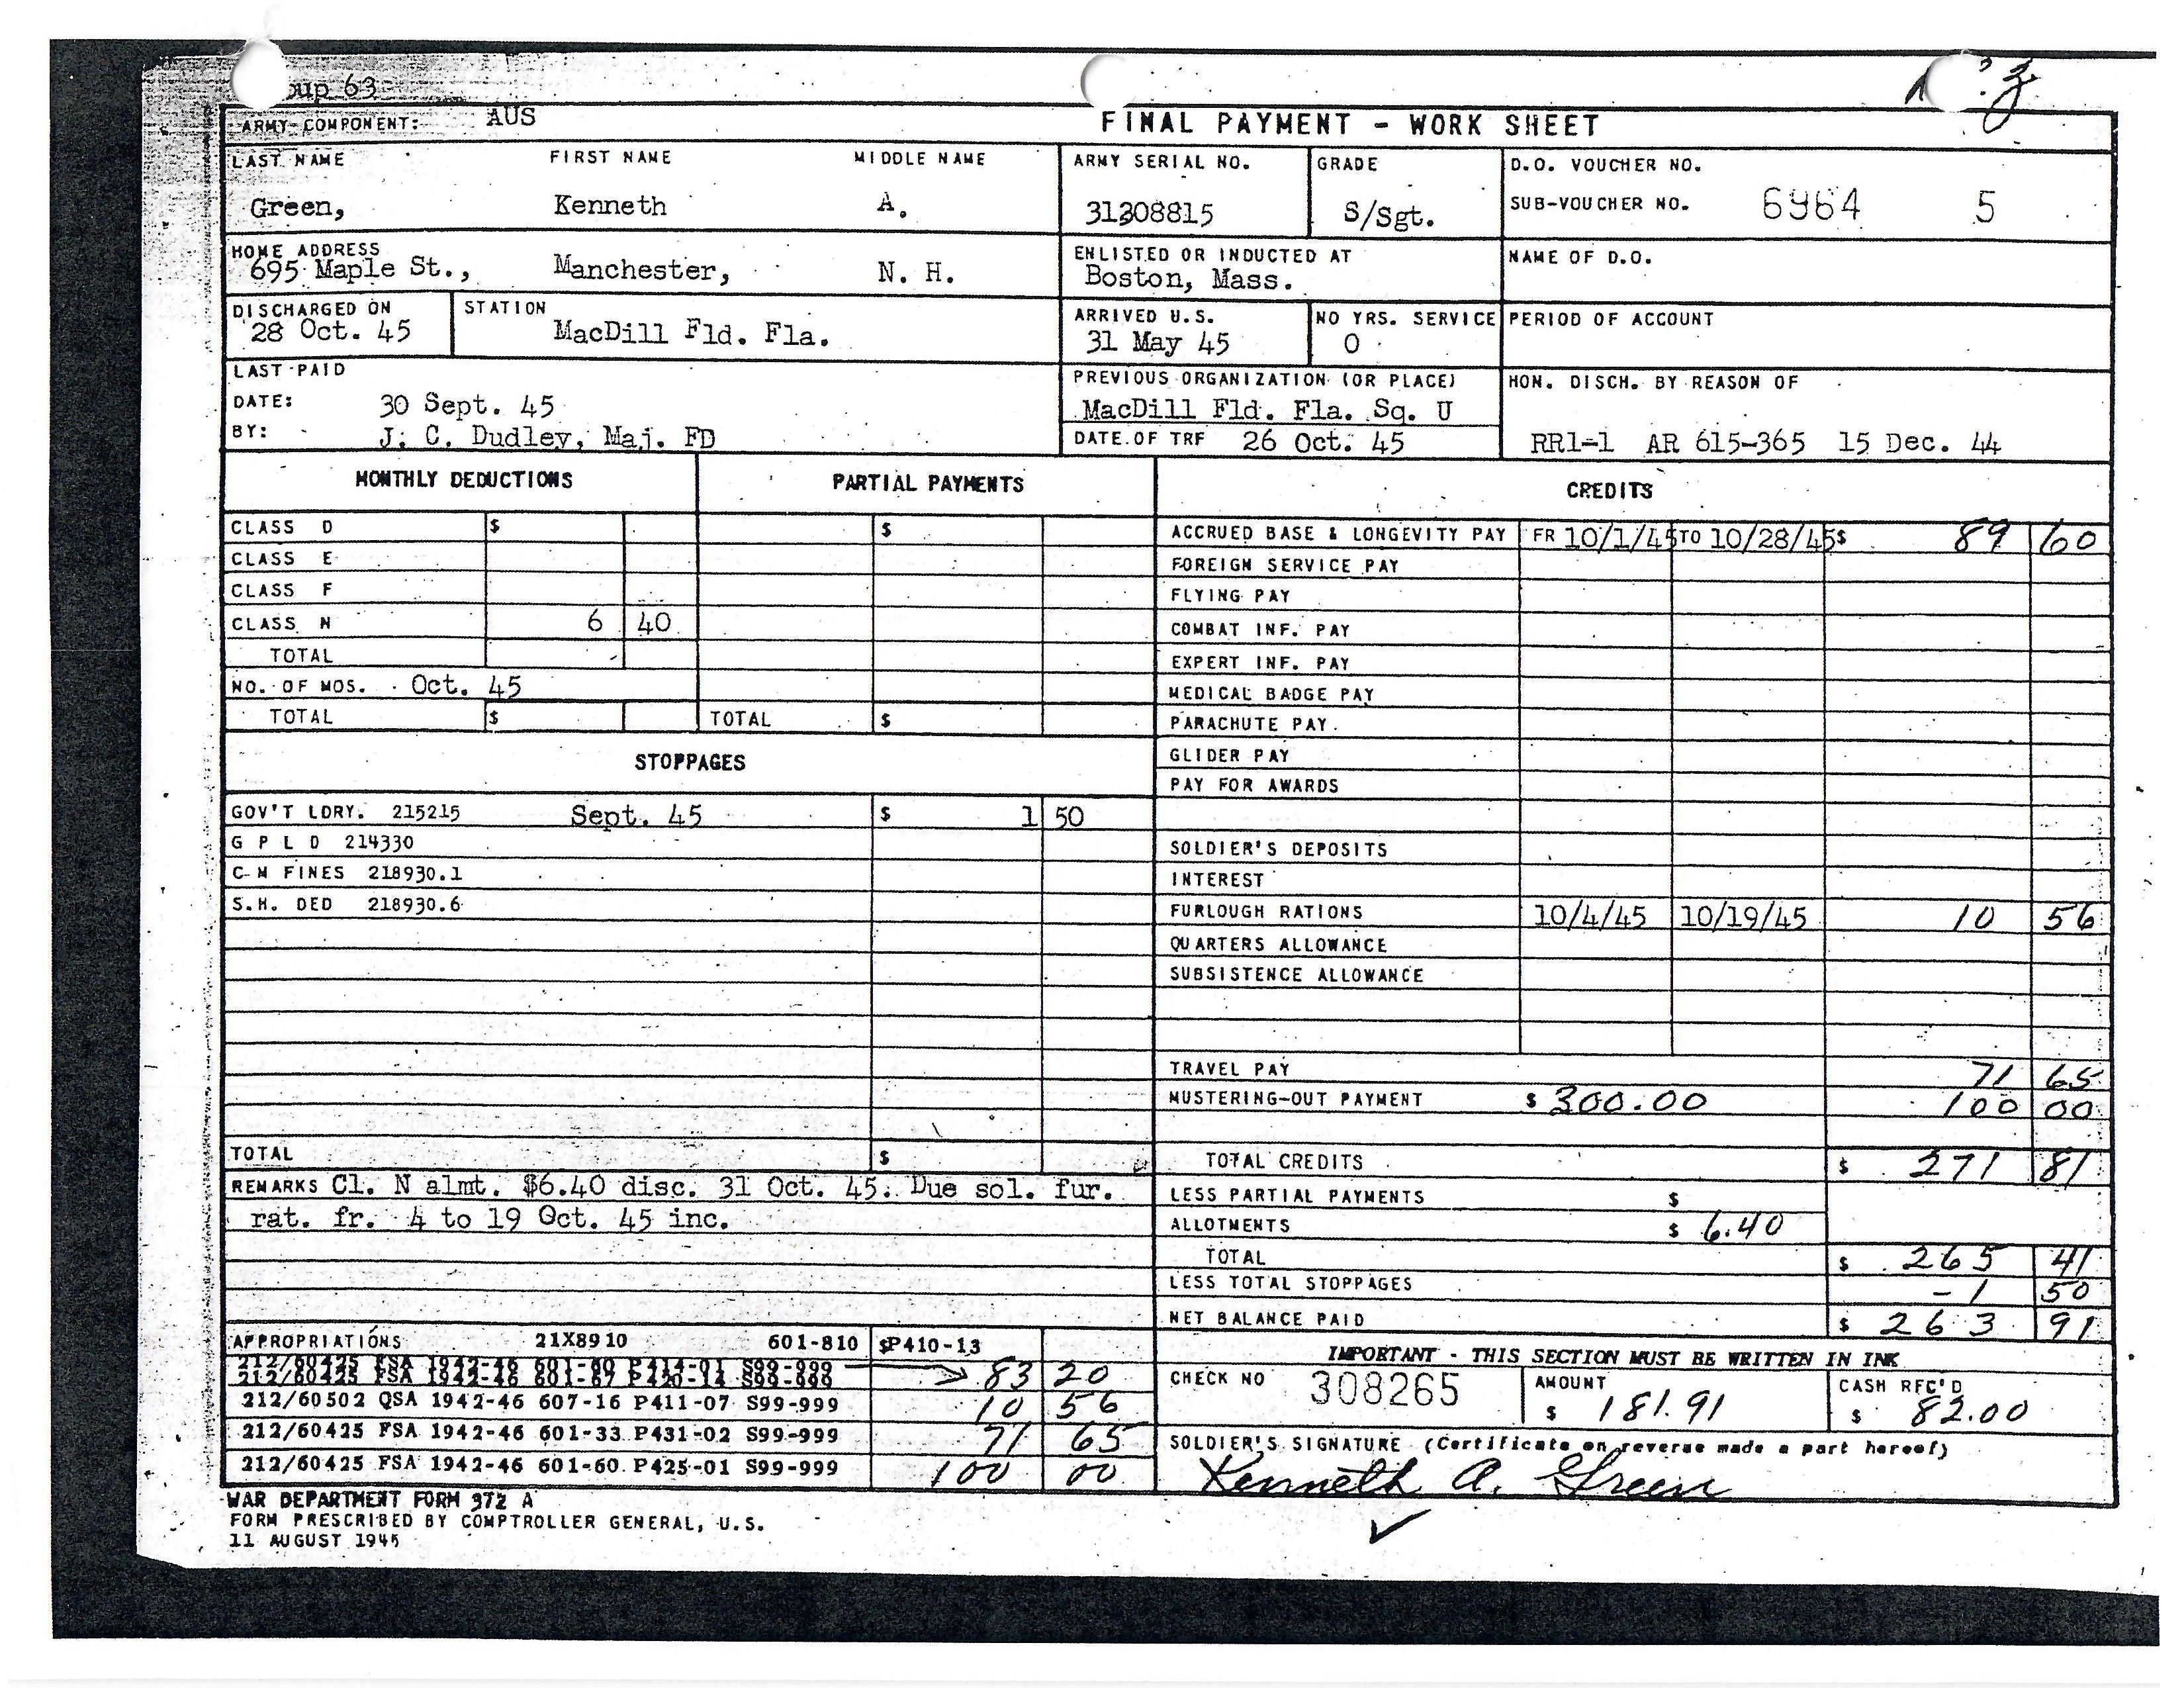 oup 63
ARMY COMPONENT: AUS
FINAL PAYMENT - WORK SHEET
LAST NAME FIRST NAME MIDDLE NAME
Green, Kenneth A.
ARMY SERIAL NO.
31308815
GRADE
S/Sgt.
D.O. VOUCHER NO.
SUB-VOUCHER NO. 6964 5
HOME ADDRESS
695 Maple St., Manchester, N. H.
ENLISTED OR INDUCTED AT
Boston, Mass.
NAME OF D.O.
DISCHARGED ON
28 Oct. 45
STATION
MacDill Fld. Fla.
ARRIVED U.S.
31 May 45
NO YRS. SERVICE
0
PERIOD OF ACCOUNT
LAST PAID
DATE: 30 Sept. 45
BY: J. C. Dudley, Maj. FD
PREVIOUS ORGANIZATION (OR PLACE)
MacDill Fld. Fla. Sq. U
DATE OF TRF 26 Oct. 45
HON. DISCH. BY REASON OF
RR1-1 AR 615-365 15 Dec. 44
MONTHLY DEDUCTIONS
PARTIAL PAYMENTS
CLASS D $ $
CLASS E
CLASS F
CLASS N 6 40
TOTAL
NO. OF MOS. Oct. 45
TOTAL $ TOTAL $
STOPPAGES
GOV'T LDRY. 215215 Sept. 45 $ 1 50
G P L D 214330
C-M FINES 218930.1
S.H. DED 218930.6
TOTAL $
REMARKS Cl. N almt. $6.40 disc. 31 Oct. 45. Due sol. fur.
rat. fr. 4 to 19 Oct. 45 inc.
APPROPRIATIONS 21X8910 601-810 $P410-13
212/60425 FSA 1942-46 601-60 P414-01 S99-999
212/60425 FSA 1942-46 601-67 P420-14 S99-999 83 20
212/60502 QSA 1942-46 607-16 P411-07 S99-999 10 56
212/60425 FSA 1942-46 601-33 P431-02 S99-999 71 65
212/60425 FSA 1942-46 601-60 P425-01 S99-999 100 00
CREDITS
ACCRUED BASE & LONGEVITY PAY FR 10/1/45 TO 10/28/45 $ 89 60
FOREIGN SERVICE PAY
FLYING PAY
COMBAT INF. PAY
EXPERT INF. PAY
MEDICAL BADGE PAY
PARACHUTE PAY
GLIDER PAY
PAY FOR AWARDS
SOLDIER'S DEPOSITS
INTEREST
FURLOUGH RATIONS 10/4/45 10/19/45 10 56
QUARTERS ALLOWANCE
SUBSISTENCE ALLOWANCE
TRAVEL PAY 71 65
MUSTERING-OUT PAYMENT $ 300.00 100 00
TOTAL CREDITS $ 271 81
LESS PARTIAL PAYMENTS $
ALLOTMENTS $ 6.40
TOTAL $ 265 41
LESS TOTAL STOPPAGES - 1 50
NET BALANCE PAID $ 263 91
IMPORTANT - THIS SECTION MUST BE WRITTEN IN INK
CHECK NO 308265
AMOUNT
$ 181.91
CASH REC'D
$ 82.00
SOLDIER'S SIGNATURE (Certificate on reverse made a part hereof)
Kenneth A. Green
WAR DEPARTMENT FORM 372 A
FORM PRESCRIBED BY COMPTROLLER GENERAL, U.S.
11 AUGUST 1945